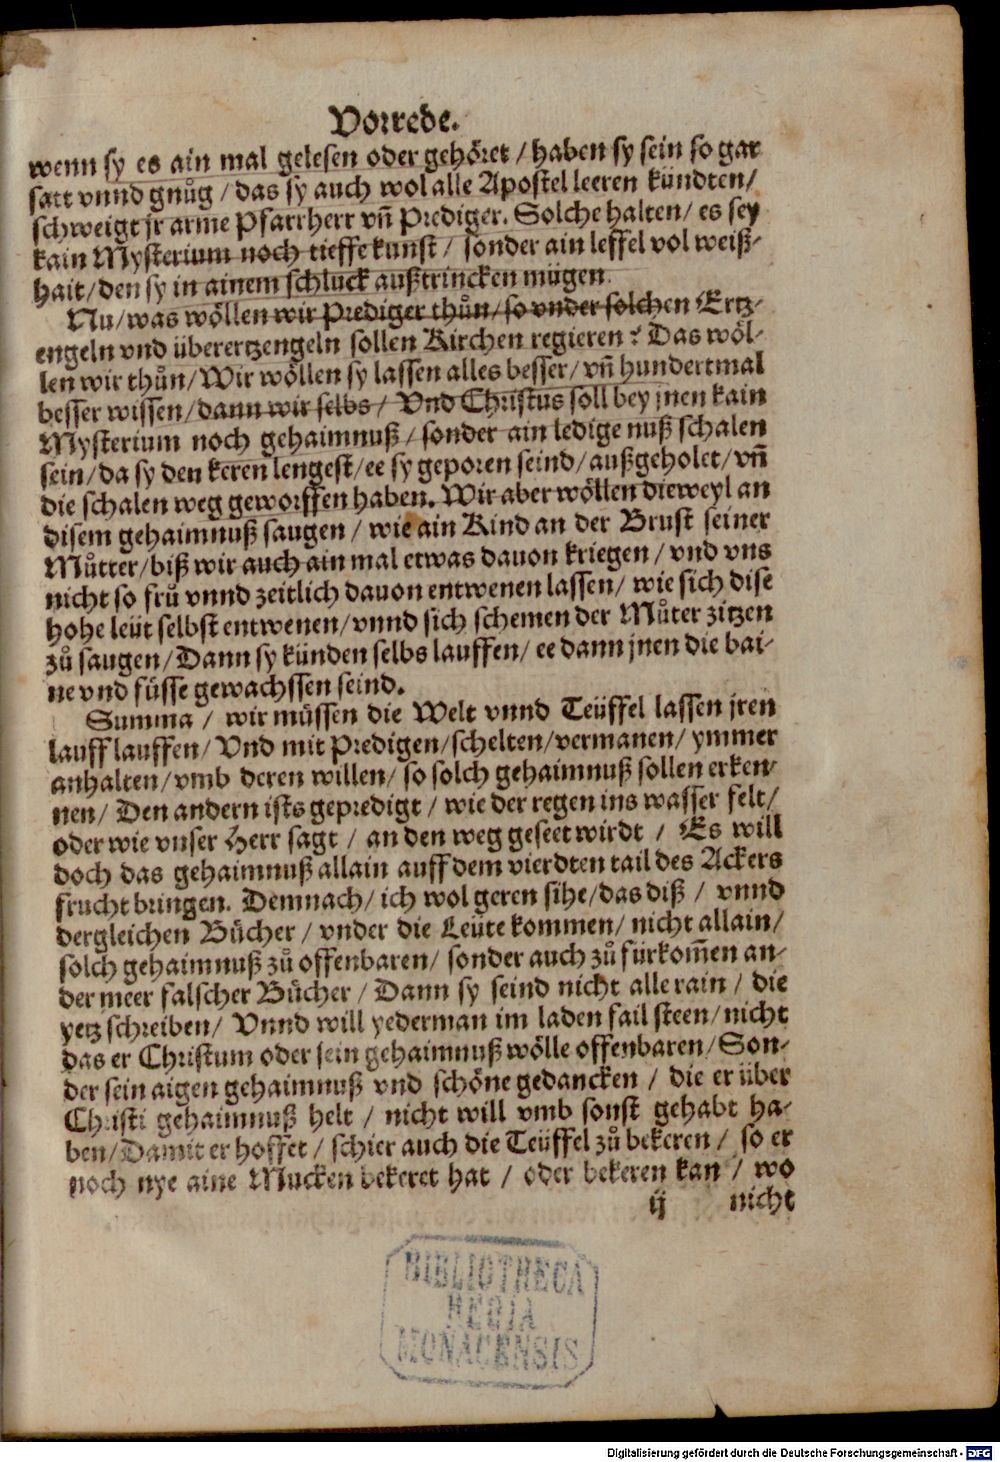 Vorrede.
wenn sy es ain mal gelesen oder gehöret / haben sy sein so gar
satt vnnd gnůg / das sy auch wol alle Apostel leeren kündten/
schweigt jr arme Pfarrherr vñ Prediger. Solche halten/ es sey
kain Mysterium noch tieffe kunst / sonder ain leffel vol weiß-
hait/den sy in ainem schluck außtrincken mügen.
Nu/was wöllen wir Prediger thůn/so vnder solchen Ertz-
engeln vnd überertzengeln sollen Kirchen regieren? Das wöl-
len wir thůn/Wir wöllen sy lassen alles besser/vñ hundertmal
besser wissen/dann wir selbs/ Vnd Christus soll bey jnen kain
Mysterium noch gehaimnuß/sonder ain ledige nuß schalen
sein/da sy den keren lengest/ee sy geporen seind/außgeholet/vñ
die schalen weg geworffen haben. Wir aber wöllen dieweyl an
disem gehaimnuß saugen / wie ain Kind an der Brust seiner
Můtter/biß wir auch ain mal etwas dauon kriegen/vnd vns
nicht so frů vnnd zeitlich dauon entwenen lassen/ wie sich dise
hohe leüt selbst entwenen/vnnd sich schemen der Můter zitzen
zů saugen/Dann sy künden selbs lauffen/ee dann jnen die bai-
ne vnd füsse gewachssen seind.
Summa / wir müssen die Welt vnnd Teüffel lassen jren
lauff lauffen/Vnd mit Predigen/schelten/vermanen/ ymmer
anhalten/vmb deren willen/so solch gehaimnuß sollen erken-
nen/ Den andern ists gepredigt / wie der regen ins wasser felt/
oder wie vnser Herr sagt / an den weg geseet wirdt / Es will
doch das gehaimnuß allain auff dem vierdten tail des Ackers
frucht bringen. Demnach/ich wol geren sihe/das diß / vnnd
dergleichen Bücher / vnder die Leüte kommen/ nicht allain/
solch gehaimnuß zů offenbaren/ sonder auch zů fürkom̃en an-
der meer falscher Bücher / Dann sy seind nicht alle rain / die
yetz schreiben/ Vnnd will yederman im laden fail steen/nicht
das er Christum oder sein gehaimnuß wölle offenbaren/Son-
der sein aigen gehaimnuß vnd schöne gedancken / die er über
Christi gehaimnuß helt / nicht will vmb sonst gehabt ha-
ben/Damit er hoffet / schier auch die Teüffel zů bekeren / so er
noch nye aine Mucken bekeret hat / oder bekeren kan / wo
ij nicht
BIBLIOTHECA
REGIA
MONACENSIS
Digitalisierung gefördert durch die Deutsche Forschungsgemeinschaft - DFG